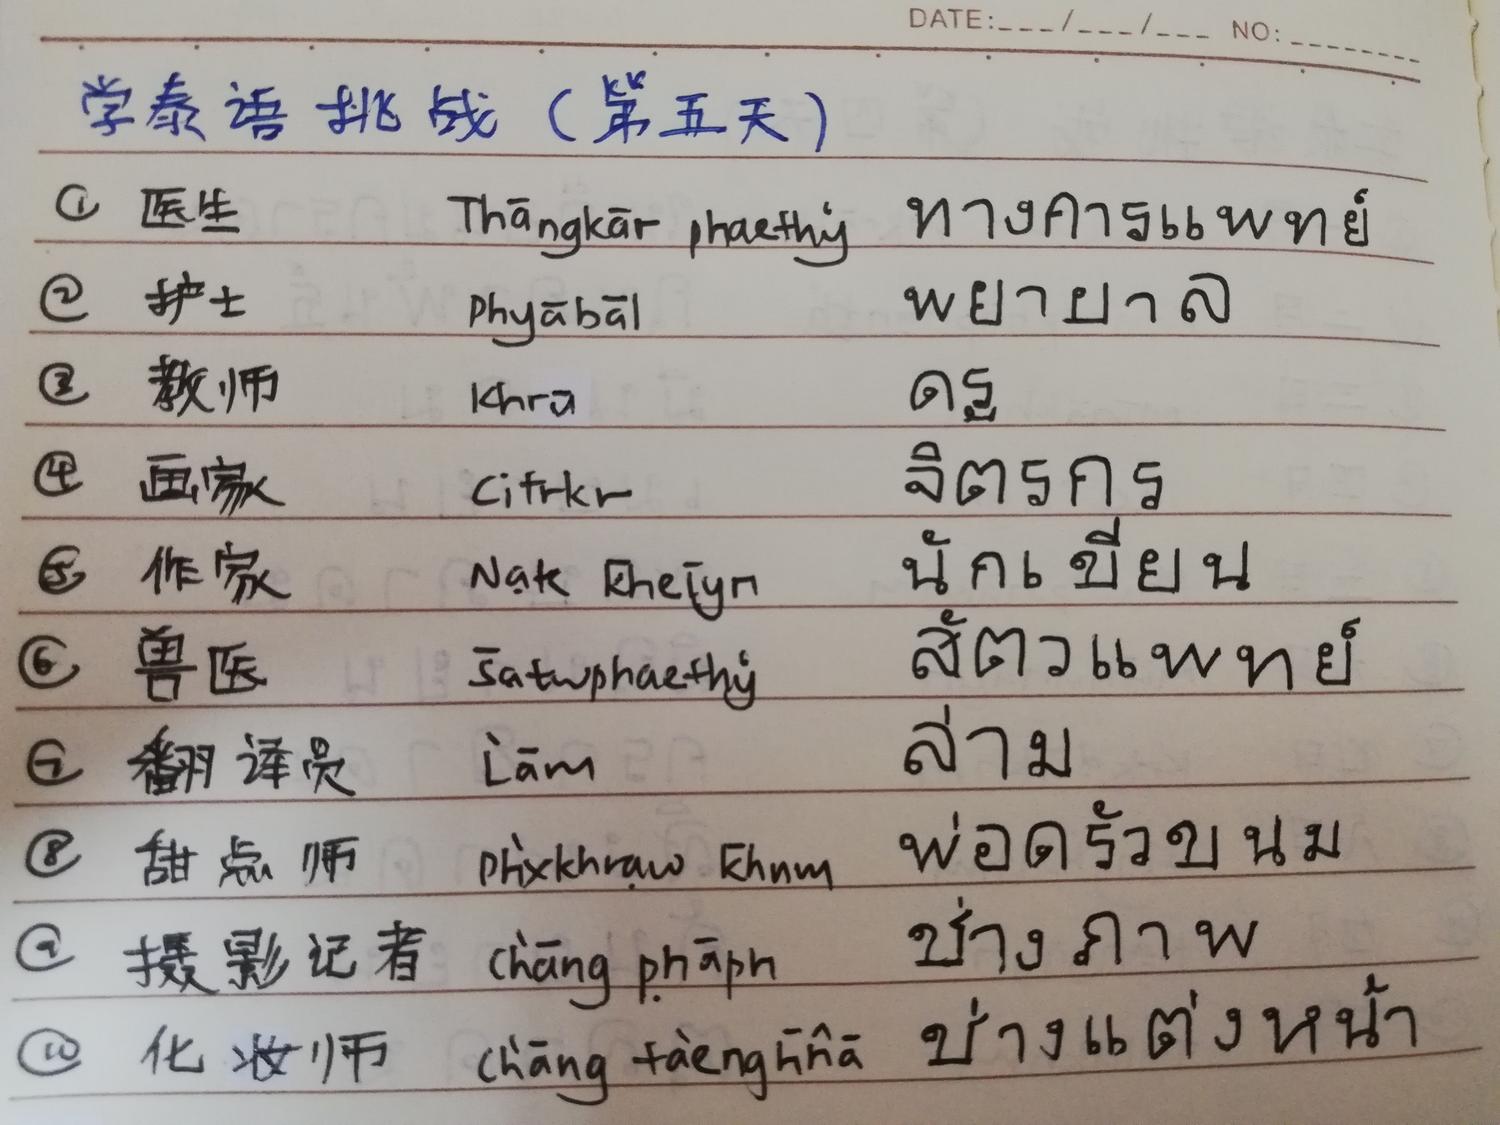 DATE:___/___/___ NO:_______
学泰语挑战(第五天)
① 医生 Thāngkār phaethy̒ ทางการแพทย์
② 护士 Phyābāl พยาบาล
③ 教师 Khrū ครู
④ 画家 Citrkr จิตรกร
⑤ 作家 Nạk k̄heīyn นักเขียน
⑥ 兽医 S̄ạtwphaethy̒ สัตวแพทย์
⑦ 翻译员 L̀ām ล่าม
⑧ 甜点师 Ph̀xkhrạw k̄hnm พ่อครัวขนม
⑨ 摄影记者 Ch̀āng p̣hāph ช่างภาพ
⑩ 化妆师 Ch̀āng tæ̀engh̄n̂ā ช่างแต่งหน้า